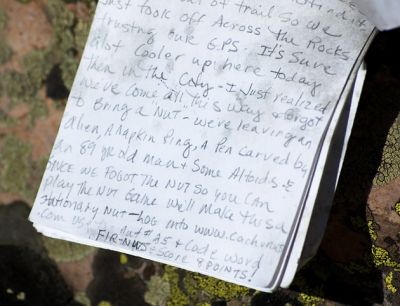 of trail so we
Just took off Across the Rocks
trusting our G.P.S. It's sure
Alot Cooler up here today
then in the City - I Just realized
we've come all this way & forgot
to Bring a NUT - we're leaving an
alien, A Napkin Ring, A Pen carved by
an 89 yr old man & Some Altoids. &
SINCE WE FOGOT THE NUT SO YOU CAN
play the NUT Game we'll Make this a
Stationary NUT - Log into www.cachunuts
.com us Nut # A5 & Code word
FIR-NWS - SCORE 4 POINTS!